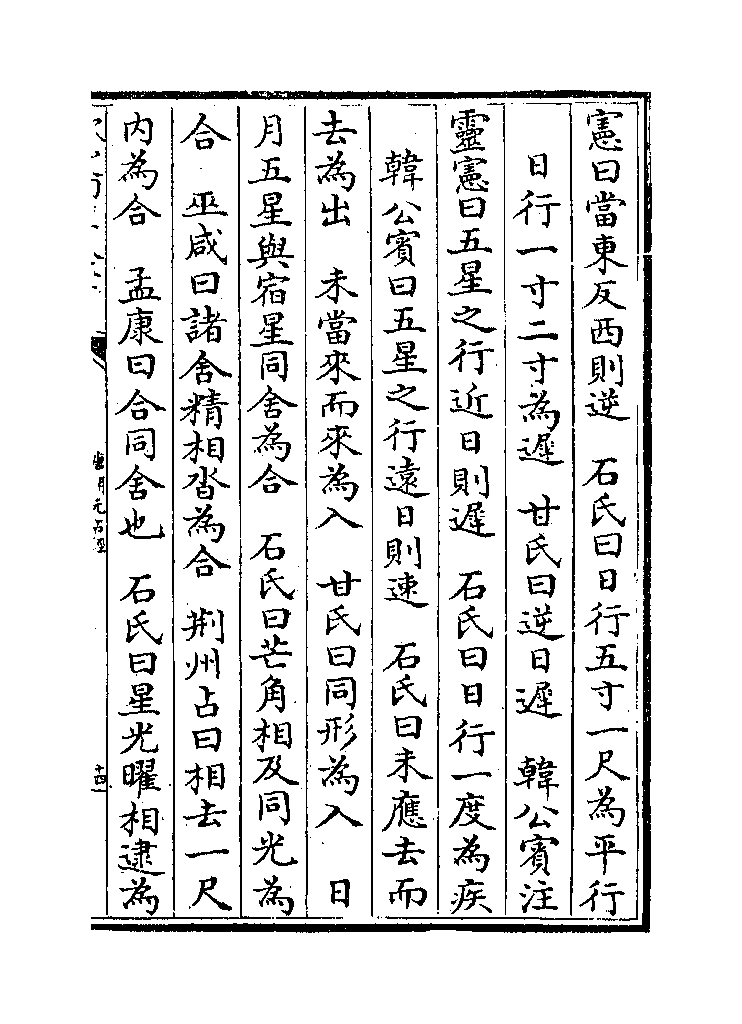 憲曰當東反西則逆　石氏曰日行五寸一尺為平行
日行一寸二寸為遲　甘氏曰逆日遲　韓公賓注
靈憲曰五星之行近日則遲　石氏曰日行一度為疾
韓公賓曰五星之行遠日則速　石氏曰未應去而
去為出　未當來而來為入　甘氏曰同形為入　日
月五星與宿星同舍為合　石氏曰芒角相及同光為
合　巫咸曰諸舍精相沓為合　荆州占曰相去一尺
内為合　孟康曰合同舍也　石氏曰星光曜相逮為
唐開元占經
十四